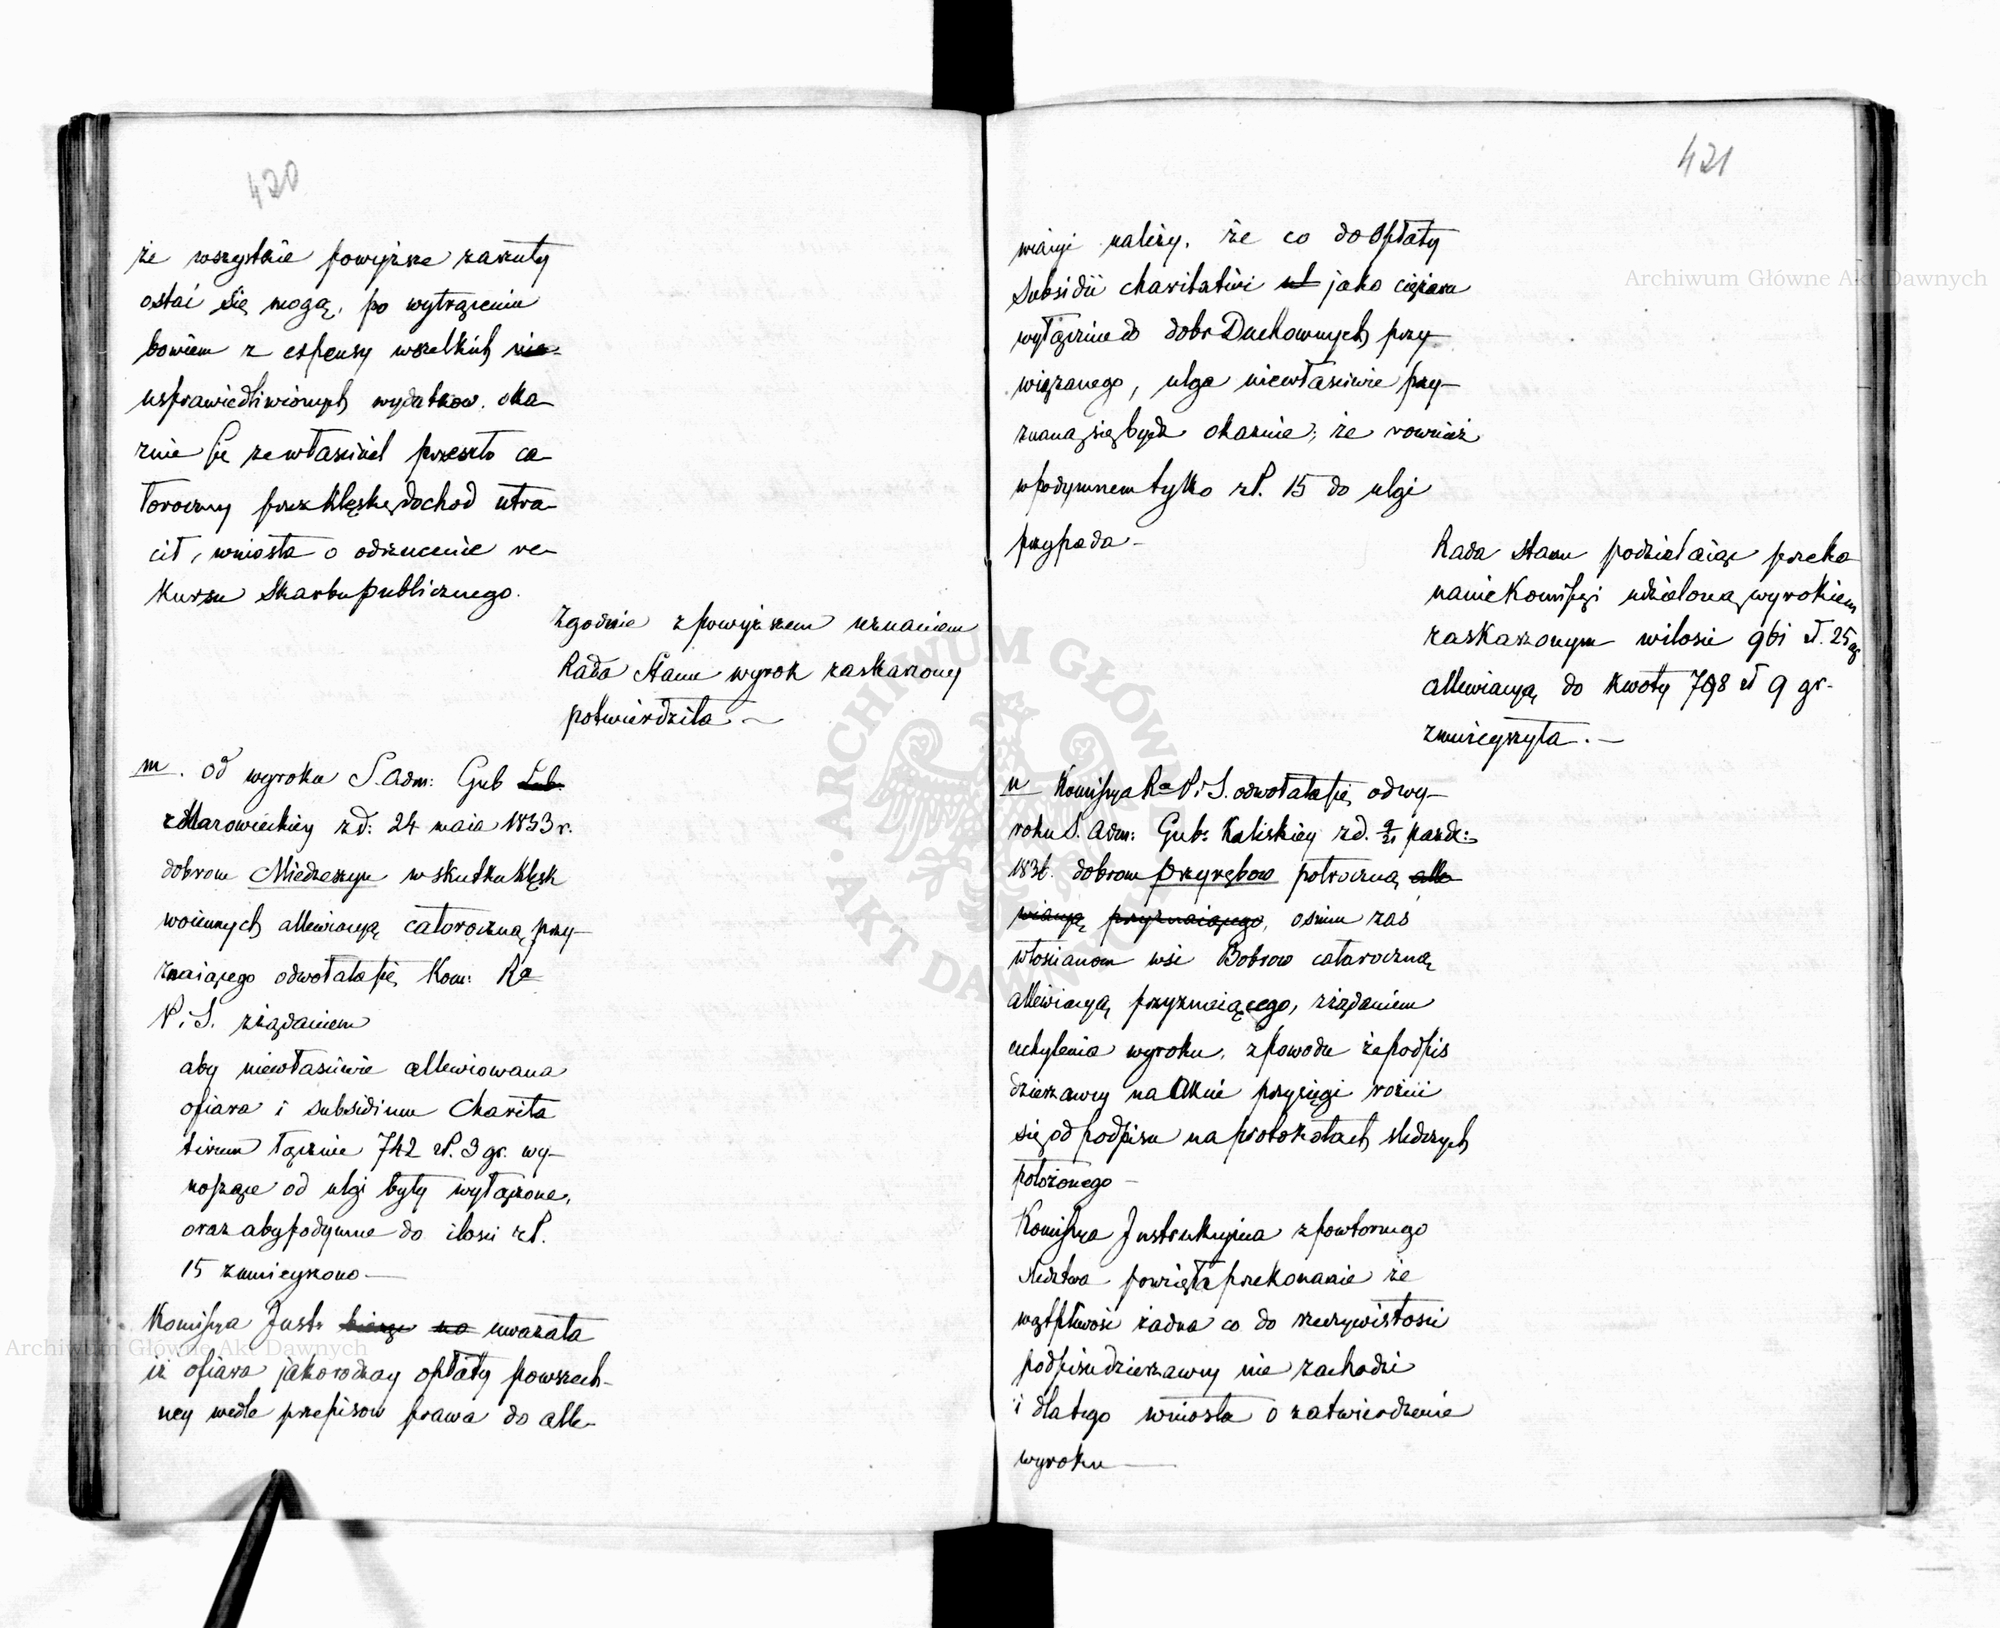 420
że wszystkie powyższe zarzuty
ostać się mogą, po wytrąceniu
bowiem z expensy wszelkich nie-
usprawiedliwionych wydatkow. oka-
znie się że właściciel przeszło ca-
łoroczny przez klęskę dochod utra-
cił, wniosła o odrzucenie re-
kursu Skarbu publicznego.
Zgodnie z powyższem uznaniem
Rada Stanu wyrok zaskarzony
potwierdziła. —
m. od wyroku S. Adm: Gub Lub.
z Mazowieckiey z d: 24 maia 1833 r.
dobrom Miedzeszyn w skutku klęsk
woiennych allewiacyą całoroczną przy-
znaiącego odwołała się Kom: R.
P. i S. z żądaniem
aby niewłaściwie allewiowana
ofiara i subsidium Charita
tivum łącznie 742 zł. 3 gr. wy-
noszące od ulgi były wyłączone,
oraz aby podymne do ilości zł.
15 zmnieyszono —
Kommissya Instr uwazała
iż ofiara jako rodzay opłaty powszech-
ney wedle przepisow prawa do alle-
421
wiacyi należy, że co do Opłaty
Subsidii charitativi jako ciężaru
wyłącznie do dobr Duchownych przy-
wiązanego, ulga niewłaściwie przy-
znaną się bydź okazuie; że rownież
w podymnem tylko zł. 15 do ulgi
przypada —
Rada Stanu podzielaiąc przeko
nanie Kommissyi udzieloną wyrokiem
zaskarzonym w ilości 961 zł. 25 gr
allewiacyą do kwoty 798 zł 9 gr.
zmnieyszyła. —
n Kommissya R. P. i S. odwołała się od wy-
roku S. Adm: Gub: Kaliskiey z d. 9/21 pazdz:
183 dobrom Przyrębow połroczną alle-
wiacyą przyznaiącego, ośmiu zaś
włościanom wsi Bobrow całoroczną
allewiacyą przyznaiącego, z żądaniem
uchylenia wyroku, z powodu że podpis
dzierzawcy na Akcie przysięgi rożni
się od podpisu na protokołach śledczych
położonego —
Kommissya Instrukcyina z powtornego
śledztwa powzięła przekonanie że
wątpliwość żadna co do rzeczywistości
podpisu dzierzawcy nie zachodzi
i dlatego wniosła o zatwierdzenie
wyroku —
Archiwum Główne Akt Dawnych
Archiwum Główne Akt Dawnych
ARCHIWUM GŁÓWNE AKT DAWNYCH